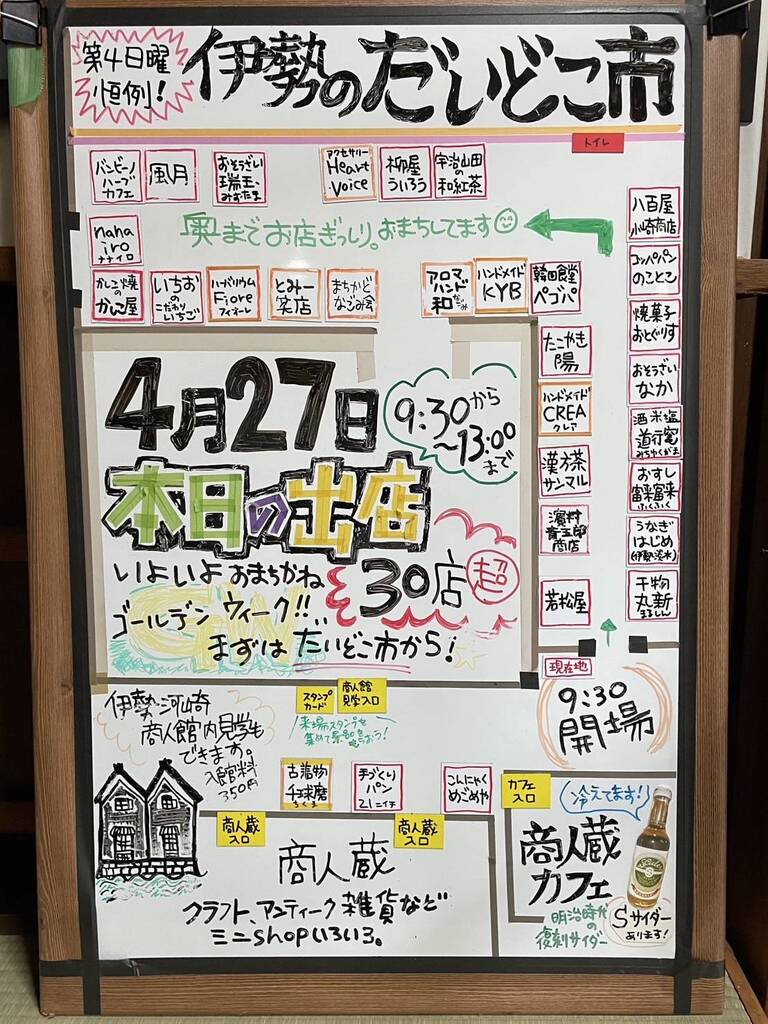 第4日曜
恒例!
伊勢のだいどこ市
トイレ
バンビーノ
ハーブ
カフェ
風月
おそうざい
瑞玉
みずたま
アクセサリー
Heart
Voice
柳屋
ういろう
宇治山田
の
和紅茶
八百屋
小崎商店
nana
iro
ナナイロ
奥までお店ぎっしり。おまちしてます
コッペパン
のことこ
かしこ焼
の
かしこ屋
いちお
のこだわり
いちご
ハーバリウム
Fiore
フィオーレ
とみー
笑店
まちかど
なごみ斎
アロマ
ハンド
和
なごみ
ハンドメイド
KYB
韓国食堂
ペゴパ
焼菓子
おとぐりす
たこやき
陽
おそうざい
なか
ハンドメイド
CREA
クレア
酒米塩
道行竃
みちゆくがま
漢方茶
サンマル
おすし
富来富来
ふくふく
濱村
音五郎
商店
うなぎ
はじめ
(伊勢淡水)
若松屋
干物
丸新
まるしん
4月27日
9:30から
~13:00
まで
本日の出店
いよいよおまちかね
30店
超
GW
ゴールデンウィーク!!
まずはだいどこ市から!
現在地
9:30
開場
伊勢・河崎
商人館内見学も
できます。
入館料
350円
スタンプ
カード
商人館
見学入口
来場スタンプを
集めて景品をもらおう!
古着物
千球磨
ちくま
手づくり
パン
21ニイチ
こんにゃく
めごめや
カフェ
入口
冷えてます!
商人蔵
入口
商人蔵
入口
商人蔵
クラフト、アンティーク雑貨など
ミニshopいろいろ。
商人蔵
カフェ
明治時代
の
復刻サイダー
Sサイダー
あります!